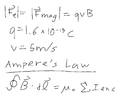 |F⃗e|=|F⃗mag|= qvB
q=1.6×10⁻¹⁹C
v=5m/s
Ampere's Law
∮B⃗·dl⃗=μ₀ΣIenc